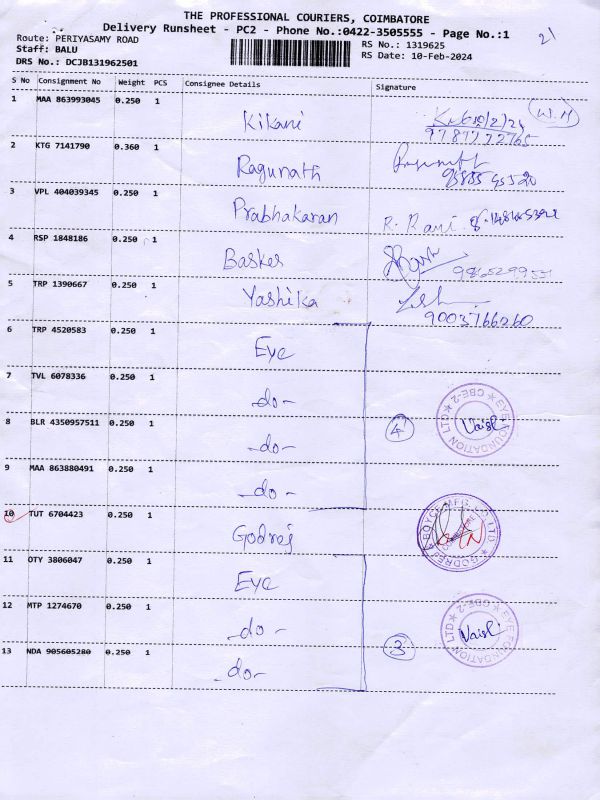 THE PROFESSIONAL COURIERS, COIMBATORE
Delivery Runsheet - PC2 - Phone No.:0422-3505555 - Page No.:1
21
Route: PERIYASAMY ROAD
RS No.: 1319625
Staff: BALU
RS Date: 10-Feb-2024
DRS No.: DCJB131962501
S No Consignment No Weight PCS Consignee Details Signature
1 MAA 863993045 0.250 1 Kikani 10/2/24 W.H
9787772765
2 KTG 7141790 0.360 1 Ragunath
3 VPL 404039345 0.250 1 Prabhakaran R. Rani
4 RSP 1848186 0.250 1 Basker
5 TRP 1390667 0.250 1 Yashika
9003766260
6 TRP 4520583 0.250 1 Eye
7 TVL 6078336 0.250 1 -do-
EYE FOUNDATION LTD CBE-2 Vaish
8 BLR 4350957511 0.250 1 -do- 4
9 MAA 863880491 0.250 1 -do-
10 TUT 6704423 0.250 1 Godrej
GODREJ & BOYCE MFG. CO. LTD
11 OTY 3806047 0.250 1 Eye
12 MTP 1274670 0.250 1 -do-
EYE FOUNDATION LTD CBE-2 Vaish
13 NDA 905605280 0.250 1 -do- 3